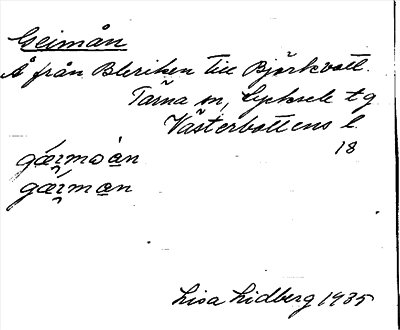 Gejmån
Å från Bleriken till Björkvatt.
Tärna sn, Lycksele tg
Västerbottens l.
18
gæi̯moàn
gæ̀i̯màn
Lisa Lidberg 1935